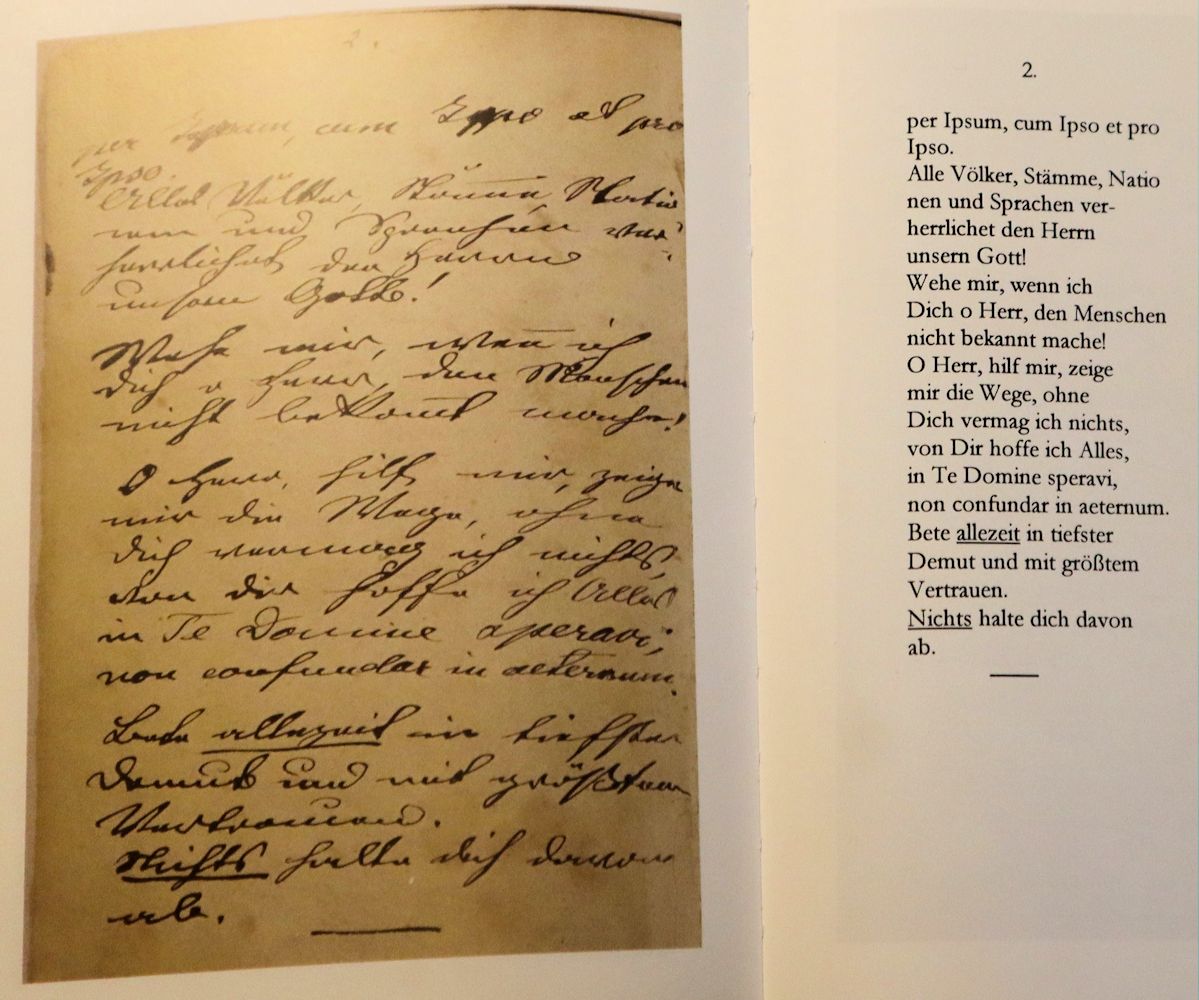 2.
per Ipsum, cum Ipso et pro
Ipso.
Alle Völker, Stämme, Natio
nen und Sprachen ver-
herrlichet den Herrn
unsern Gott!
Wehe mir, wen̅ ich
Dich o Herr, den Menschen
nicht bekan̅t mache!
O Herr, hilf mir, zeige
mir die Wege, ohne
Dich vermag ich nichts,
von Dir hoffe ich Alles
in Te Domine speravi,
non confundar in aeternum.
Bete allezeit in tiefster
Demut und mit größtem
Vertrauen.
Nichts halte dich davon
ab.
2.
per Ipsum, cum Ipso et pro
Ipso.
Alle Völker, Stämme, Natio
nen und Sprachen ver-
herrlichet den Herrn
unsern Gott!
Wehe mir, wenn ich
Dich o Herr, den Menschen
nicht bekannt mache!
O Herr, hilf mir, zeige
mir die Wege, ohne
Dich vermag ich nichts,
von Dir hoffe ich Alles,
in Te Domine speravi,
non confundar in aeternum.
Bete allezeit in tiefster
Demut und mit größtem
Vertrauen.
Nichts halte dich davon
ab.